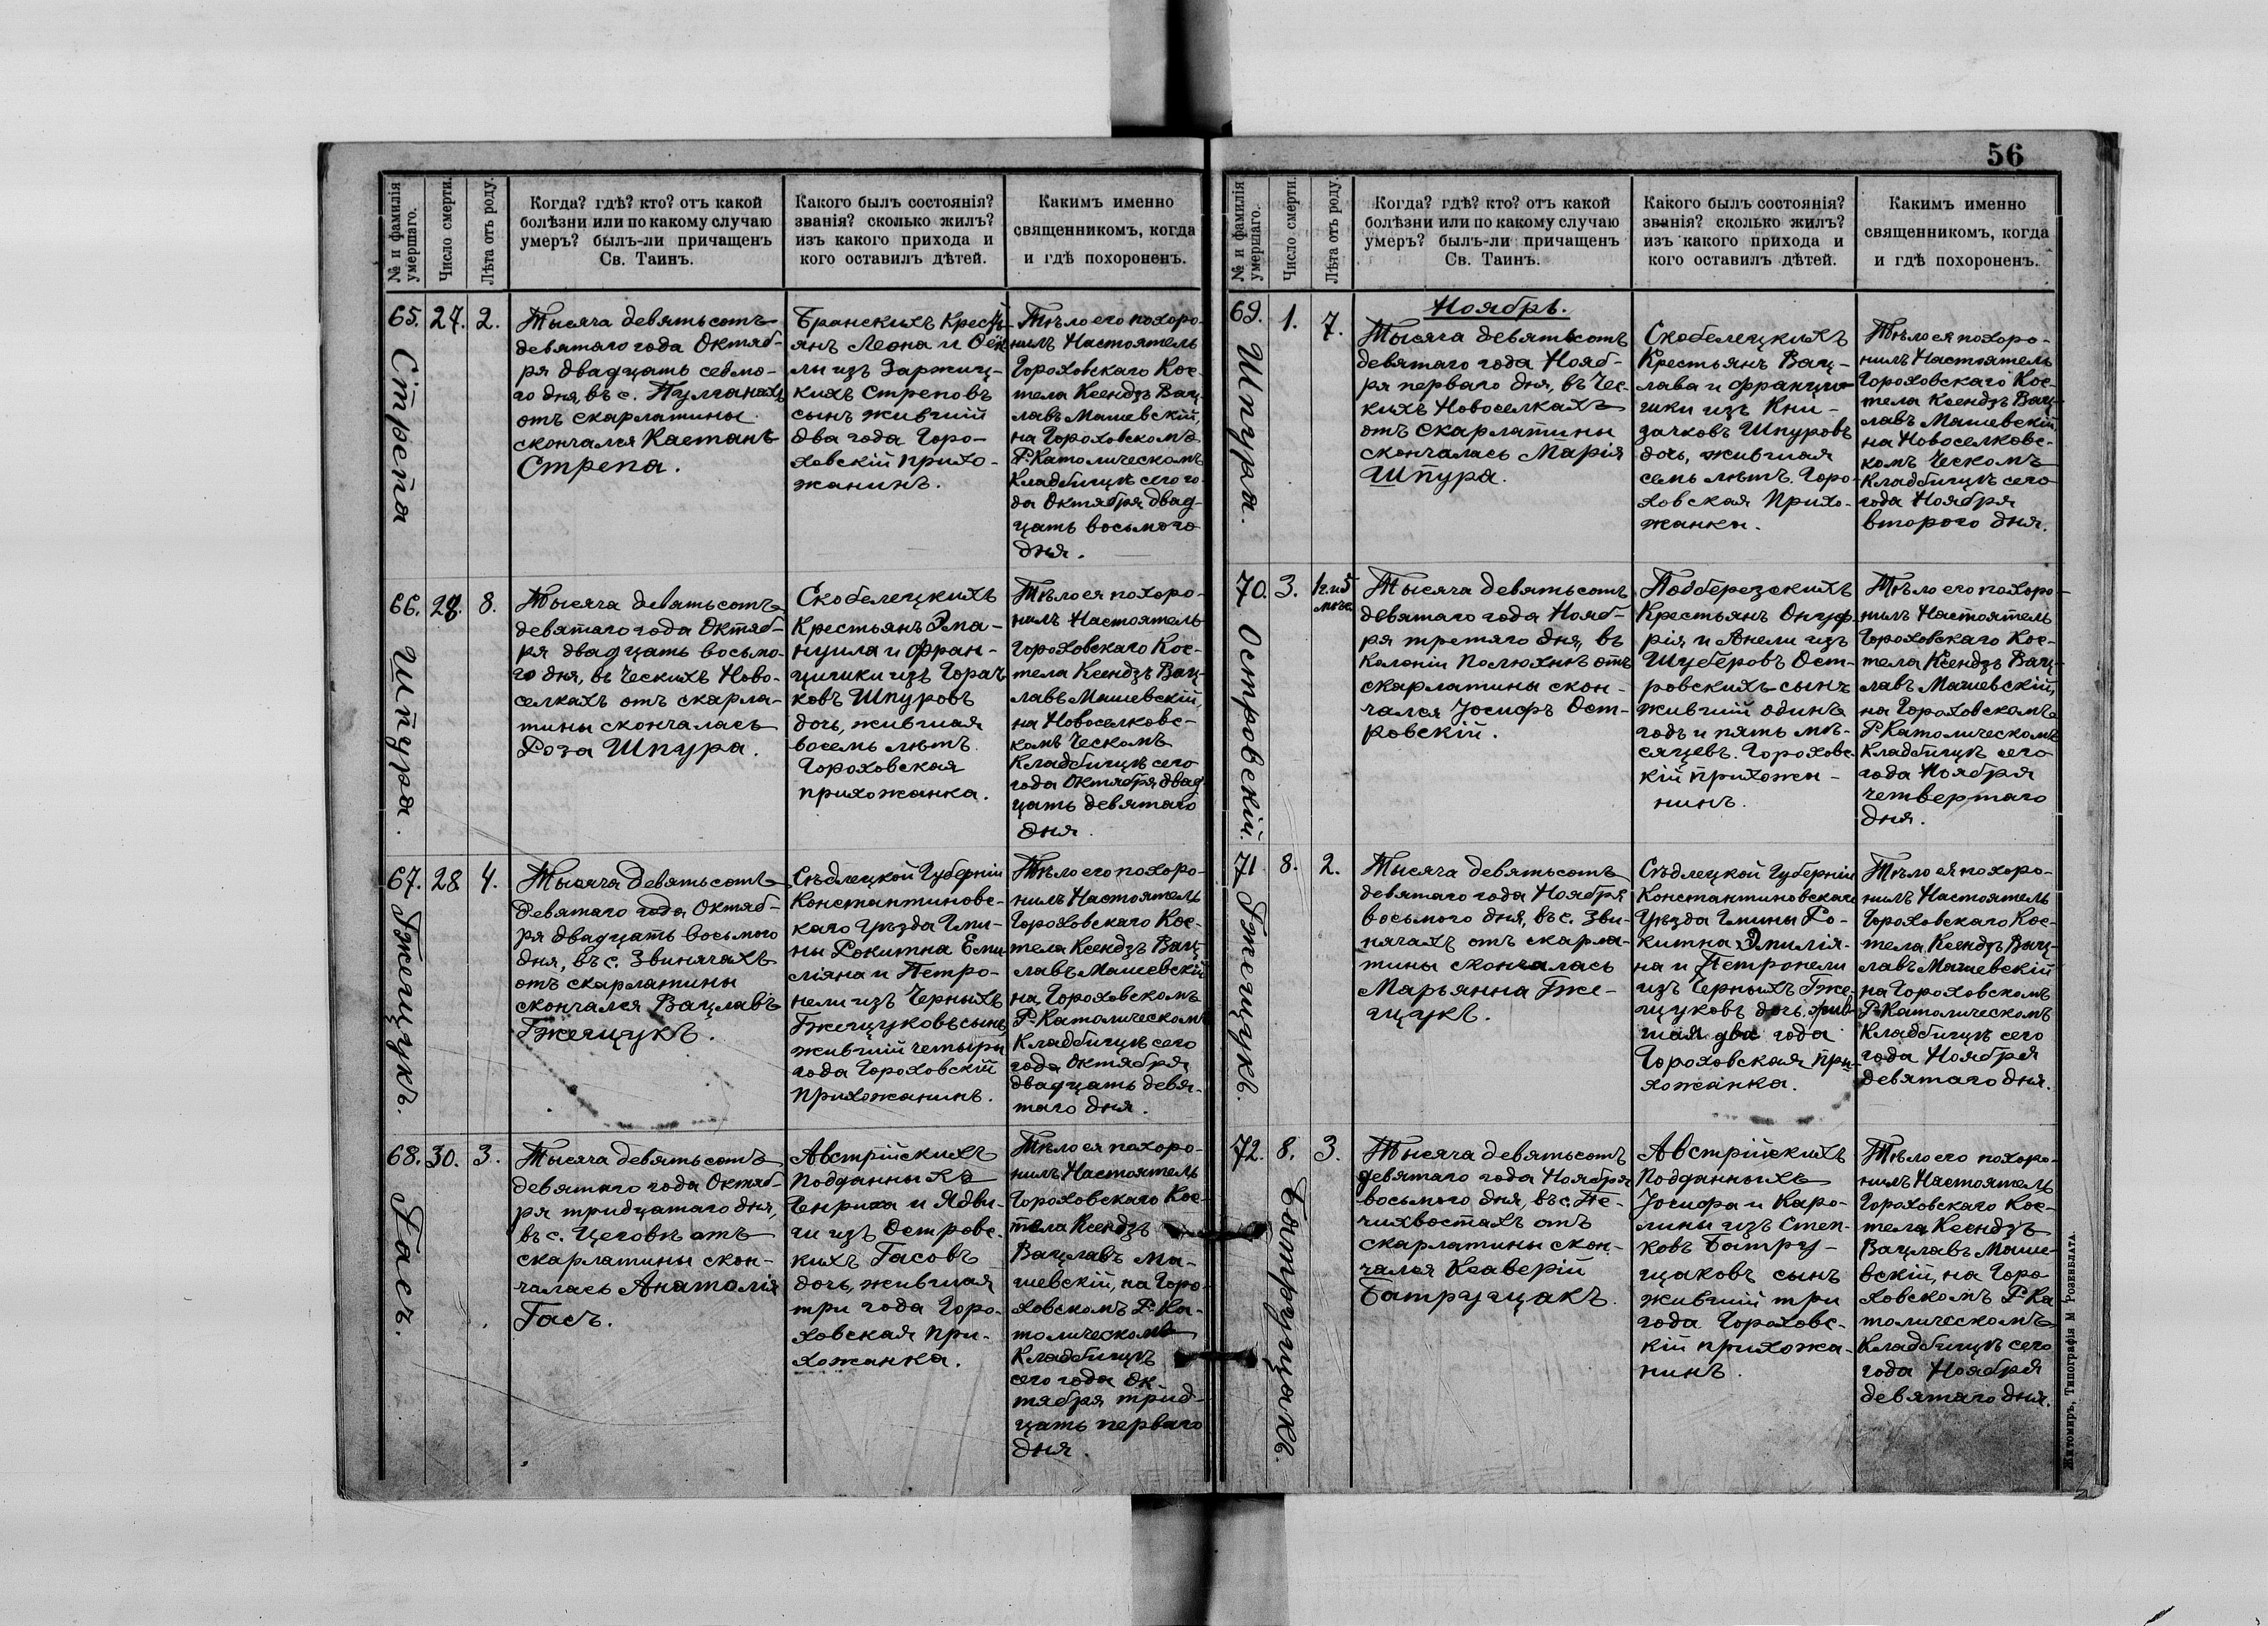 № и фамилія
умершаго.
Число смерти.
Лѣта отъ роду.
Когда? гдѣ? кто? отъ какой
болѣзни или по какому случаю
умеръ? былъ-ли причащенъ
Св. Таинъ.
Какого былъ состоянія?
званія? сколько жилъ?
изъ какого прихода и
кого оставилъ дѣтей.
Какимъ именно
священникомъ, когда
и гдѣ похороненъ.
65.
Стрепа
27.
2.
Тысяча девятьсотъ
девятаго года Октяб-
ря двадцать седмо-
го дня, въ с. Пулганахъ
отъ скарлатины
скончался Каетанъ
Стрепа.
Бранскихъ Кресть-
янъ Леона и
лы изъ
кихъ Стреповъ
сынъ жившій
два года Горо-
ховскій прихо-
жанинъ.
Тѣло его похоро-
нилъ Настоятель
Гороховскаго Кос-
тела Ксендзъ Вац-
лавъ Машевскій,
на Гороховскомъ
Р. Католическомъ
Кладбищѣ сего го-
да Октября двад-
цать восьмого
дня.
66.
Шпура.
28.
8.
Тысяча девятьсотъ
девятаго года Октяб-
ря двадцать восьмо-
го дня, въ Ческихъ Ново-
селкахъ отъ скарла-
тины скончалась
Роза Шпура.
Скобелецкихъ
Крестьянъ Эма-
нуила и Фран-
цишки изъ Горач
ковъ Шпуровъ
дочь, жившая
восемь лѣтъ.
Гороховская
прихожанка.
Тѣло ея похоро-
нилъ Настоятель
Гороховскаго Кос-
тела Ксендзъ Вац-
лавъ Машевскій,
на Новоселковс-
комъ Ческомъ
Кладбищѣ сего
года Октября двад-
цать девятаго
дня.
67.
Гжещукъ.
28
4.
Тысяча девятьсотъ
девятаго года Октяб-
ря двадцать восьмого
дня, въ с. Звинячахъ
отъ скарлатины
скончался Вацлавъ
Гжещукъ.
Сѣдлецкой Губерніи
Константиновс-
каго Уѣзда Гми-
ны Рокитна Еми
ліяна и Петро-
нели изъ Черныхъ
Гжещуковъ сынъ
жившій четыри
года Гороховскій
Прихожанинъ.
Тѣло его похоро-
нилъ Настоятель
Гороховскаго Кос-
тела Ксендзъ Вац-
лавъ Машевскій
на Гороховскомъ
Р. Католическомъ
Кладбищѣ сего
года Октября
двадцать девя-
таго дня.
68.
Гасъ.
30.
3.
Тысяча девятьсотъ
девятаго года Октяб-
ря тридцатаго дня,
въ с. Цеговѣ отъ
скарлатины скон-
чалась Анатолія
Гасъ.
Австрійскихъ
Подданныхъ
Генриха и Ядви-
ги изъ Островс-
кихъ Гасовъ
дочь, жившая
три года Горо-
ховская При-
хожанка.
Тѣло ея похоро-
нилъ Настоятель
Гороховскаго Кос-
тела Ксендзъ
Вацлавъ Ма-
шевскій, на Горо-
ховскомъ Р. Ка-
толическомъ
Кладбищѣ
сего года Ок-
тября трид-
цать перваго
дня.
56
№ и фамилія
умершаго.
Число смерти.
Лѣта отъ роду.
Когда? гдѣ? кто? отъ какой
болѣзни или по какому случаю
умеръ? былъ-ли причащенъ
Св. Таинъ.
Какого былъ состоянія?
званія? сколько жилъ?
изъ какого прихода и
кого оставилъ дѣтей.
Какимъ именно
священникомъ, когда
и гдѣ похороненъ.
Ноябрь.
69.
Шпура.
1.
7.
Тысяча девятьсотъ
девятаго года Нояб-
ря перваго дня, въ Чес-
кихъ Новоселкахъ
отъ скарлатины
скончалась Марія
Шпура.
Скобелецкихъ
Крестьянъ Вац-
лава и Францш-
шки изъ Кни-
зачковъ Шпуровъ
дочь, жившая
семь лѣтъ. Горо-
ховская Прихо-
жанка.
Тѣло ея похоро-
нилъ Настоятель
Гороховскаго Кос-
тела Ксендзъ Вац-
лавъ Машевскій,
на Новоселковс-
комъ Ческомъ
Кладбищѣ сего
года Ноября
второго дня.
70.
Островскій.
3.
1г. и 5
мѣс.
Тысяча девятьсотъ
девятаго года Нояб-
ря третяго дня, въ
Колоніи Полюхнѣ отъ
скарлатины скон-
чался Іосифъ Ост-
ровскій.
Подберезскихъ
Крестьянъ Онуф-
рія и Анели изъ
Шуберовъ Ост-
ровскихъ сынъ
жившій одинъ
годъ и пять мѣ-
сяцевъ. Гороховс-
кій прихожа-
нинъ.
Тѣло его похоро-
нилъ Настоятель
Гороховскаго Кос-
тела Ксендзъ Вац-
лавъ Машевскій,
на Гороховскомъ
Р. Католическомъ
Кладбищѣ сего
года Ноября
четвертаго
дня.
71.
Гжещукъ.
8.
2.
Тысяча девятьсотъ
девятаго года Ноября
восьмого дня, въ с. Зви-
нячахъ отъ скарла-
тины скончалась
Марьянна Гже-
щукъ.
Сѣдлецкой Губерніи
Константиновскаго
Уѣзда Гмины Ро-
китна Эмилія-
на и Петронели
изъ Черныхъ Гже-
щуковъ дочь, жив-
шая два года
Гороховская При-
хожанка.
Тѣло ея похоро-
нилъ Настоятель
Гороховскаго Кос-
тела Ксендзъ Вац-
лавъ Машевскій
на Гороховскомъ
Р. Католическомъ
Кладбищѣ сего
года Ноября
девятаго дня.
72.
Батрущакъ.
8.
3.
Тысяча девятьсотъ
девятаго года Ноября
восьмого дня, въ с. Пе-
чихвостахъ отъ
скарлатины скон-
чался Ксаверій
Батрущакъ.
Австрійскихъ
Подданныхъ
Іосифа и Каро-
лины изъ Стец-
ковъ Батру-
щаковъ сынъ
жившій три
года Гороховс-
кій прихожа-
нинъ.
Тѣло его похоро-
нилъ Настоятель
Гороховскаго Кос-
тела Ксендзъ
Вацлавъ Маше-
вскій, на Горо-
ховскомъ Р. Ка
толическомъ
Кладбищѣ сего
года Ноября
девятаго дня.
Житомиръ, Типографія М Розенблата.